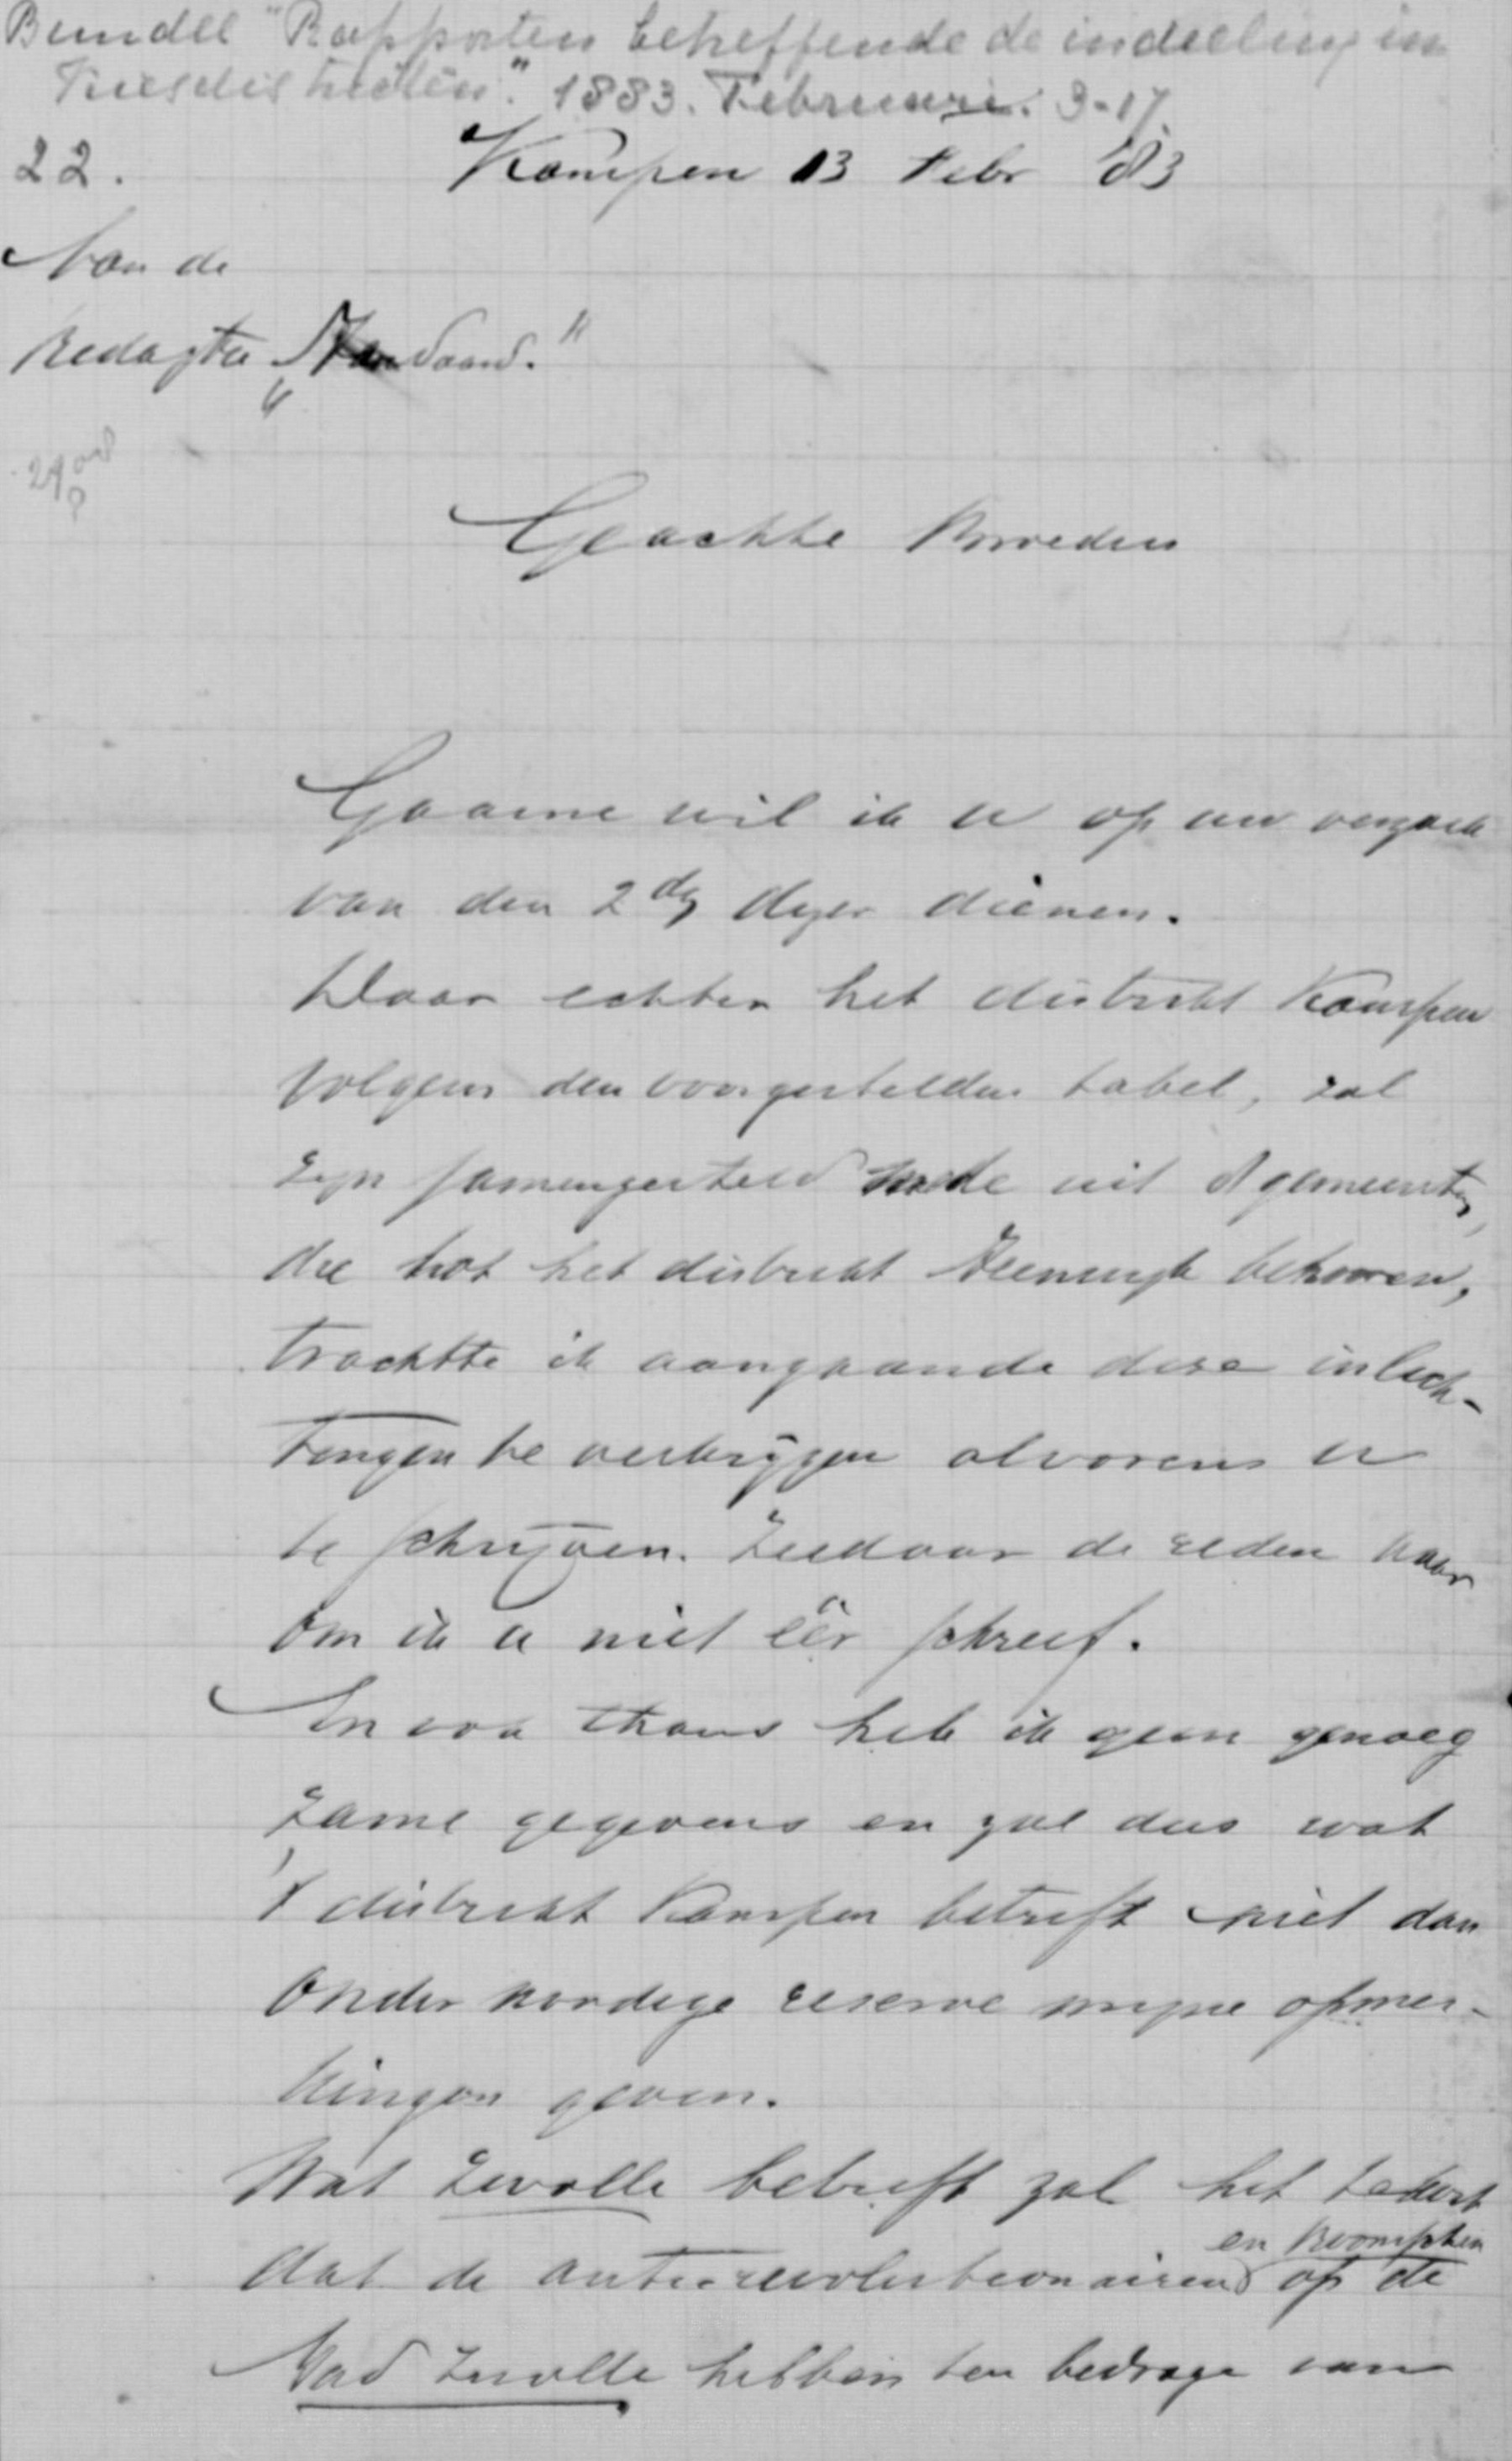 Bundel "Rapporten betreffende de indeeling in
Kiesdistricten." 1883. Februari. 3-17.
22.
Kampen 13 Febr 83
Aan de
Redaktie „Standaard."
Geachte Broeders
Gaarne wil ik u op uw verzoek
van den 2 dezer dienen.
Daar echter het distrikt Kampen
volgens den voorgestelden tabel, zal
zijn samengesteld mede uit gemeenten,
die tot het distrikt Steenwijk behooren,
trachtte ik aangaande deze inlich-
tingen te verkrijgen alvorens u
te schrijven. Ziedaar de reden waar
om ik u niet eer schreef.
En ook thans heb ik geen genoeg
zame gegevens en zal dus wat
't distrikt Kampen betreft niet dan
onder noodige reserve mijne opmer-
kingen geven.
Wat Zwolle betreft zal het
en Roomschen
dat de antirevolutionairen op de
Stad Zwolle hebben ten bedrage van